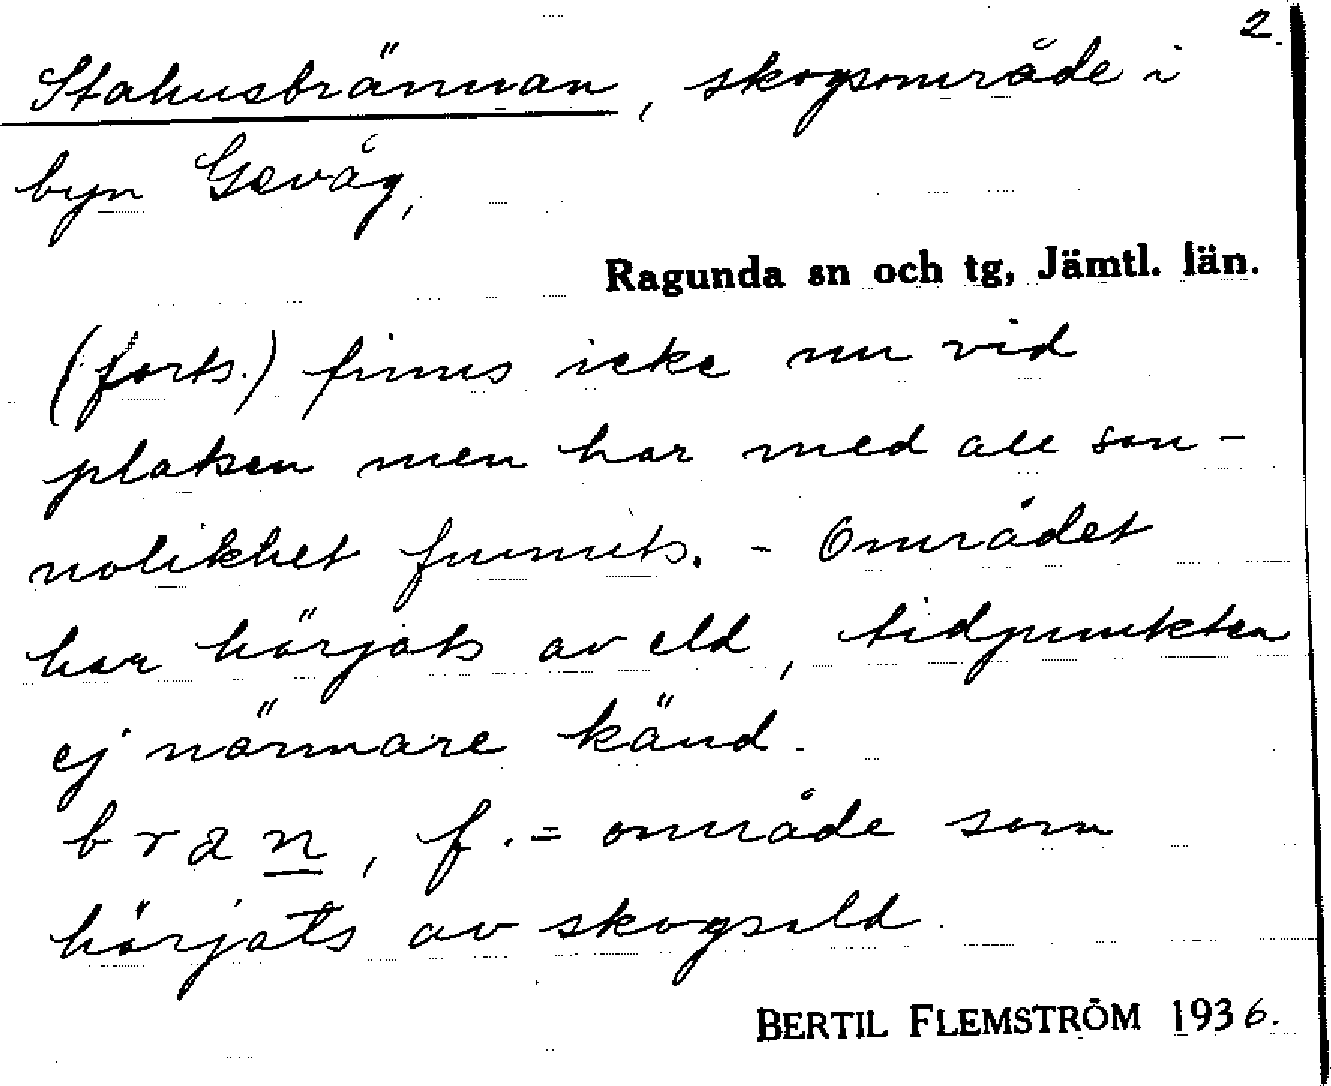 2.
Stahusbrännan, skogsområde i
byn Gevåg,
Ragunda sn och tg, Jämtl. län.
(forts.) finns icke nu vid
platsen men har med all san-
nolikhet funnits. - Området
har härjats av eld, tidpunkten
ej närmare känd.
bran, f. = område som
härjats av skogseld.
BERTIL FLEMSTRÖM 1936.